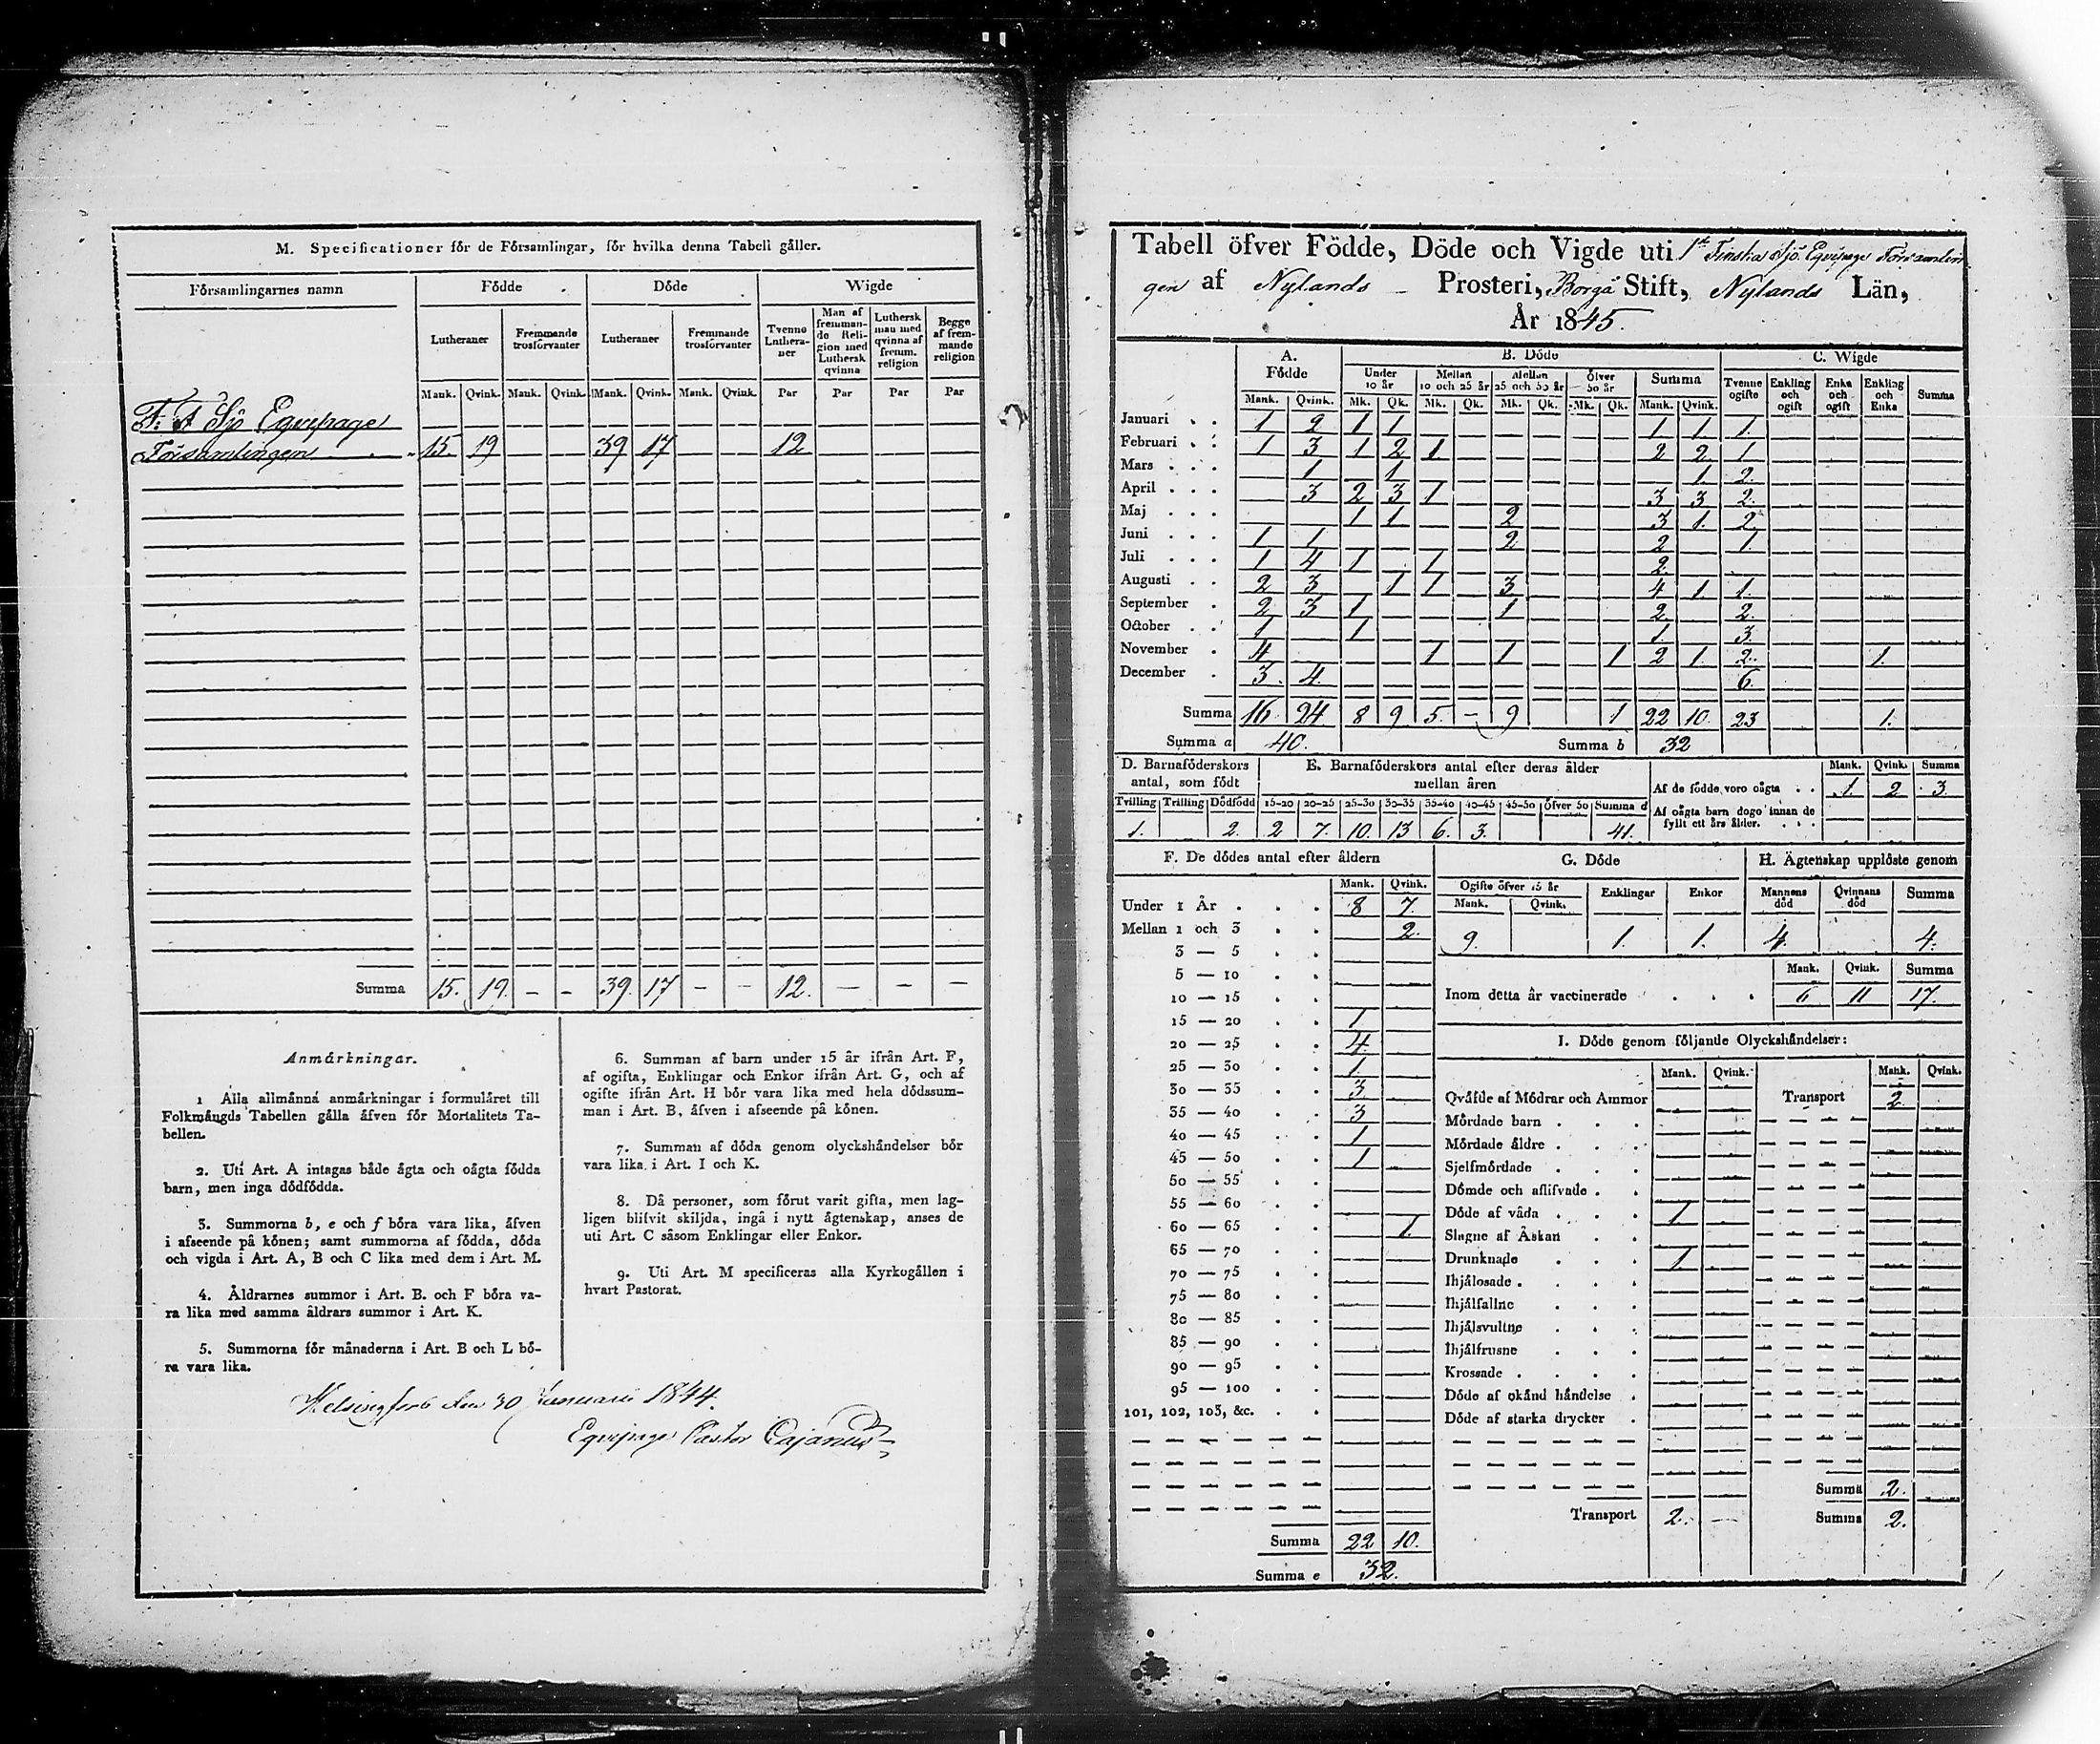 M. Specificationer för de Församlingar, för hvilka denna Tabell gäller.
Församlingarnes namn Födde Döde Wigde
Lutheraner Fremmande trosförvanter Lutheraner Fremmande trosförvanter Tvenne Lutheraner Man af fremmande Religion med Luthersk qvinna Luthersk man med qvinna af fremm. religion Begge af fremmande religion
Mank. Qvink. Mank. Qvink. Mank. Qvink. Mank. Qvink. Par Par Par Par
Sjö Eqvipage
Församlingen 15. 19 39 17 12
Summa 15. 19. - - 39. 17 - - 12. - - -
Anmärkningar.
1 Alla allmänna anmärkningar i formuläret till
Folkmängds Tabellen gälla äfven för Mortalitets Ta-
bellen.
2. Uti Art. A intagas både ägta och oägta födda
barn, men inga dödfödda.
3. Summorna b, e och f böra vara lika, äfven
i afseende på könen; samt summorna af födda, döda
och vigda i Art. A, B och C lika med dem i Art. M.
4. Åldrarnes summor i Art. B. och F böra va-
ra lika med samma åldrars summor i Art. K.
5. Summorna för månaderna i Art. B och L bö-
ra vara lika.
6. Summan af barn under 15 år ifrån Art. F,
af ogifta, Enklingar och Enkor ifrån Art. G, och af
ogifte ifrån Art. H bör vara lika med hela dödssum-
man i Art. B, äfven i afseende på könen.
7. Summan af döda genom olyckshändelser bör
vara lika i Art. I och K.
8. Då personer, som förut varit gifta, men lag-
ligen blifvit skiljda, ingå i nytt ägtenskap, anses de
uti Art. C såsom Enklingar eller Enkor.
9. Uti Art. M specificeras alla Kyrkogällen i
hvart Pastorat.
Helsingfors den 30 Januarii 1844.
Eqvipage Pastor Cajanus
Tabell öfver Födde, Döde och Vigde uti 1sta Finska Sjö Eqvipage Församlin-
gen af Nylands Prosteri, Borgå Stift, Nylands Län,
År 1845.
A. Födde B. Döde C. Wigde
Under 10 år Mellan 10 och 25 år Mellan 25 och 50 år Öfver 50 år Summa Tvenne ogifte Enkling och ogift Enka och ogift Enkling och Enka Summa
Mank. Qvink. Mk. Qk. Mk. Qk. Mk. Qk. Mk. Qk. Mank. Qvink.
Januari 1 2 1 1 1 1 1
Februari 1 3 1 2 1 2 2 1
Mars 1 1 1 2
April 3 2 3 1 3 3 2
Maj 1 1 2 3 1 2
Juni 1 1 2 2 1
Juli 1 4 1 1 2
Augusti 2 3 1 1 3 4 1 1
September 2 3 1 1 2 2
October 1 1 1 3
November 4 1 1 1 2 1 2 1
December 3 4 6
Summa 16 24 8 9 5 - 9 1 22 10 23 1
Summa a 40. Summa b 32
D. Barnaföderskors antal, som födt
E. Barnaföderskors antal efter deras ålder mellan åren
Mank. Qvink. Summa
Tvilling Trilling Dödfödd 15-20 20-25 25-30 30-35 35-40 40-45 45-50 Öfver 50 Summa d
1. 2. 2 7. 10. 13 6. 3. 41.
Af de födde voro oägta 1. 2 3.
Af oägta barn dogo innan de fyllt ett års ålder.
F. De dödes antal efter åldern
Mank. Qvink.
Under 1 År 8 7.
Mellan 1 och 3 2.
3 — 5
5 — 10
10 — 15
15 — 20 1
20 — 25 4.
25 — 30 1
30 — 35 3
35 — 40 3
40 — 45 1
45 — 50 1
50 — 55
55 — 60
60 — 65 1.
65 — 70
70 — 75
75 — 80
80 — 85
85 — 90
90 — 95
95 — 100
101, 102, 103, &c.
Summa 22 10.
Summa e 32.
G. Döde
Ogifte öfver 15 år Enklingar Enkor
Mank. Qvink.
9. 1. 1.
H. Ägtenskap upplöste genom
Mannens död Qvinnans död Summa
4. 4.
Mank. Qvink. Summa
Inom detta år vaccinerade 6 11 17.
I. Döde genom följande Olyckshändelser:
Mank. Qvink. Mank. Qvink.
Qväfde af Mödrar och Ammor Transport 2
Mördade barn
Mördade äldre
Sjelfmördade
Dömde och aflifvade
Döde af våda 1
Slagne af Åskan
Drunknade 1
Ihjälosade
Ihjälfallne
Ihjälsvultne
Ihjälfrusne
Krossade
Döde af okänd händelse
Döde af starka drycker
Summa 2.
Transport 2. - Summa 2.